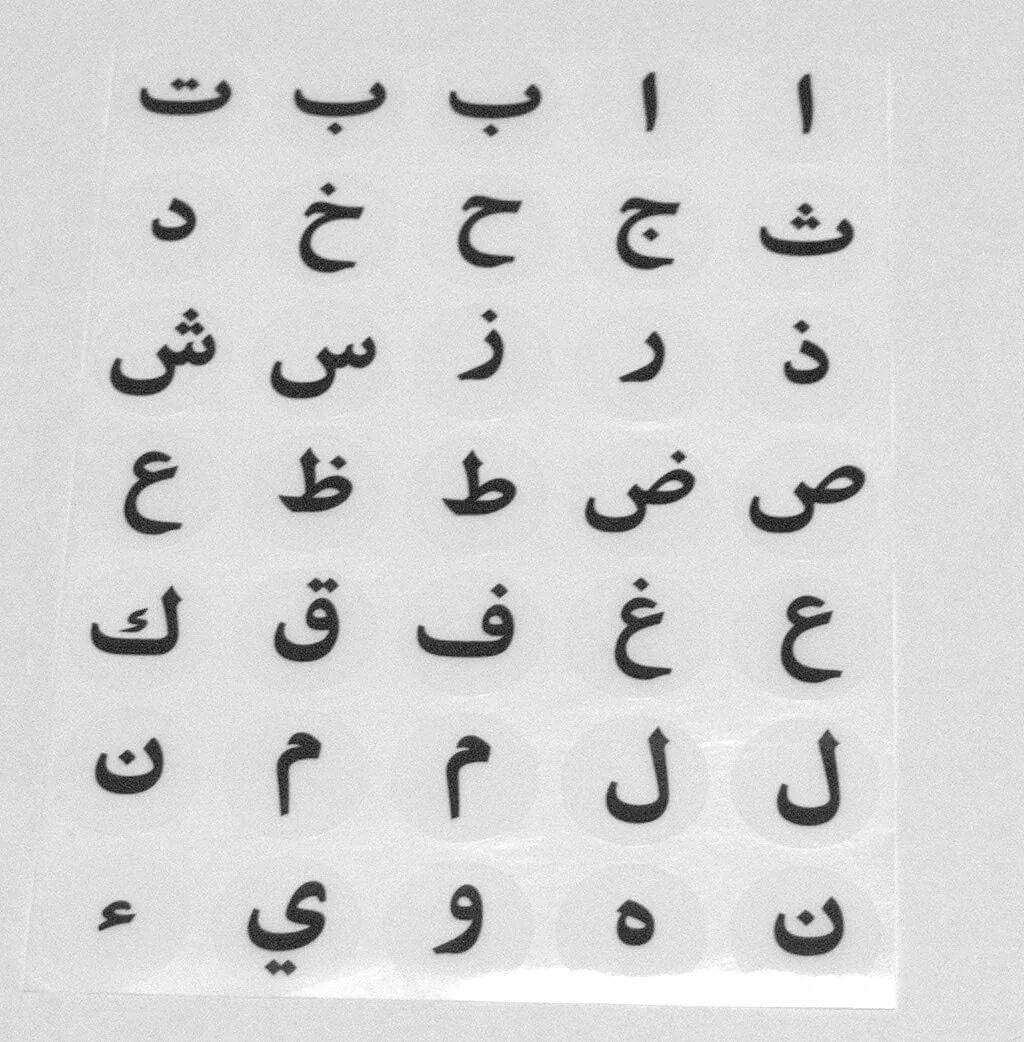 ا ا ب ب ت
ث ج ح خ د
ذ ر ز س ش
ص ض ط ظ ع
ع غ ف ق ك
ل ل م م ن
ن ه و ي ء